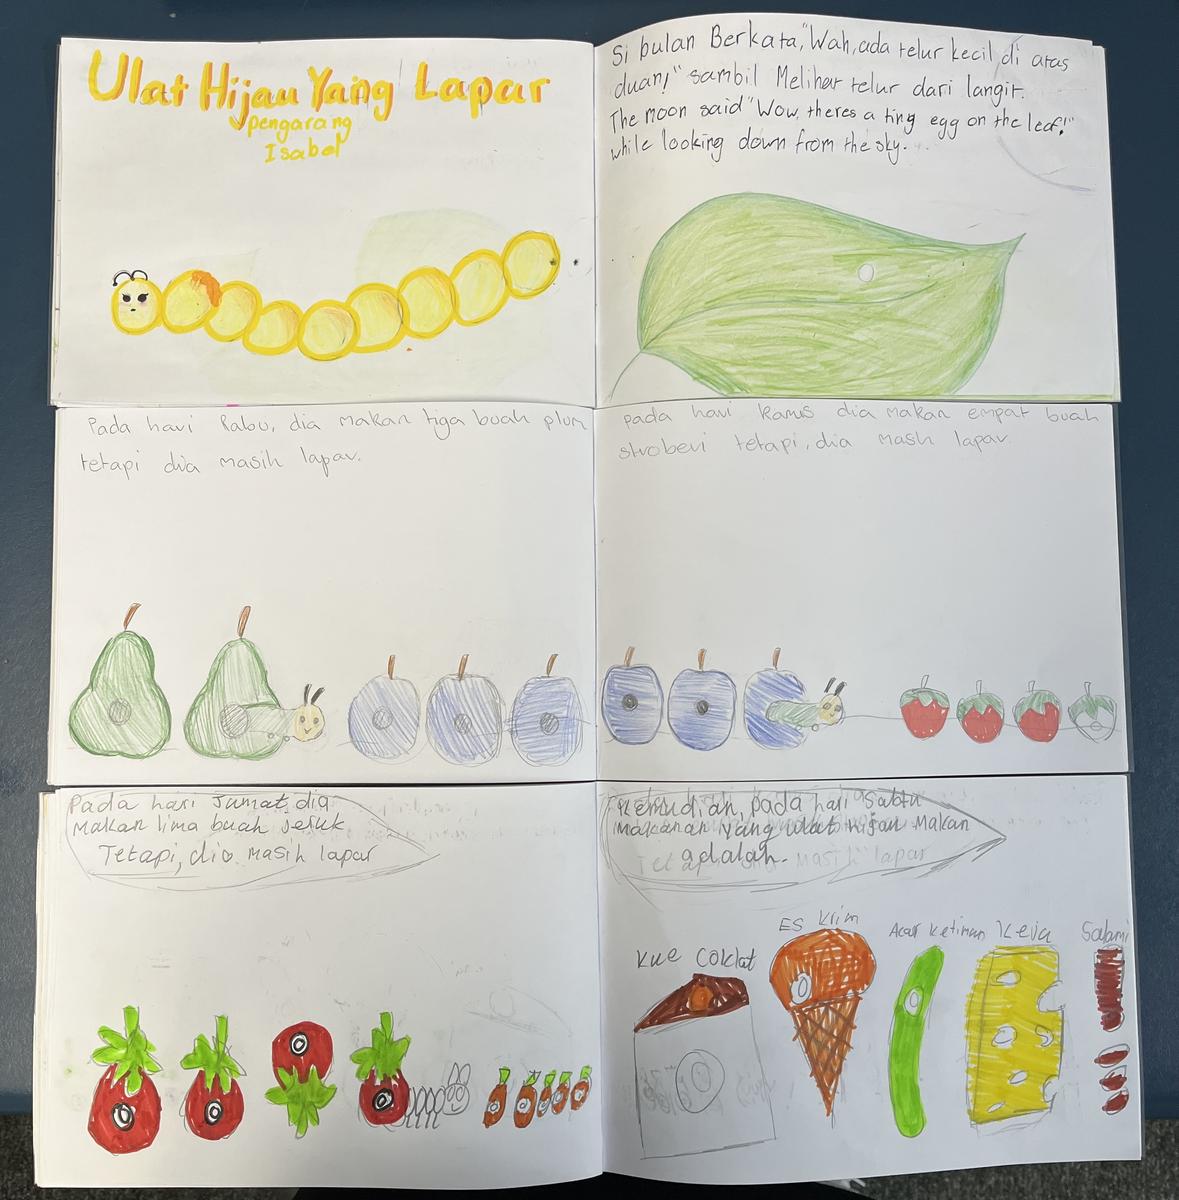 Ulat Hijau Yang Lapar
pengarang
Isabel
Si bulan Berkata, "Wah, ada telur kecil di atas
duan!" sambil Melihat telur dari langit.
The moon said "Wow, theres a tiny egg on the leaf!"
while looking down from the sky.
Pada hari Rabu, dia makan tiga buah plum
tetapi dia masih lapar.
Pada hari Kamis dia makan empat buah
stroberi tetapi, dia masih lapar.
Pada hari Jumat, dia
makan lima buah jeruk
Tetapi, dia masih lapar
Kemudian, pada hari Sabtu
makanan yang ulat hijau makan
adalah.
Kue Coklat
ES Krim
Acar Ketimun
Keju
Salami